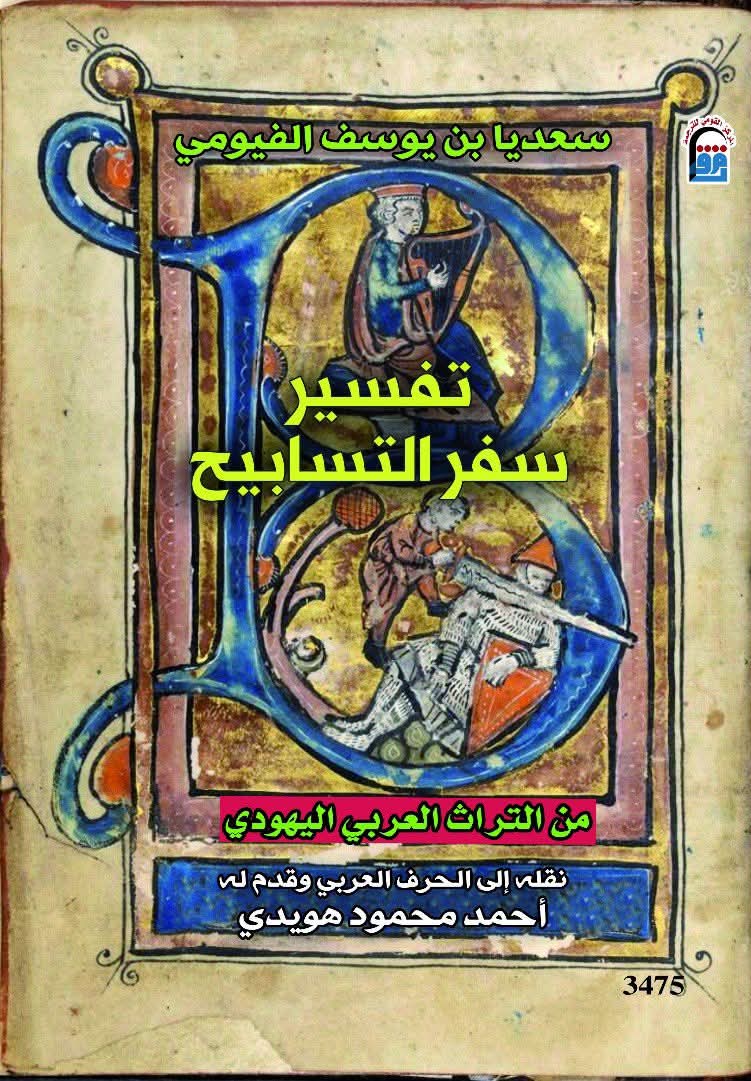 سعديا بن يوسف الفيومي
المركز القومي للترجمة
تفسير
سفر التسابيح
من التراث العربي اليهودي
نقله إلى الحرف العربي وقدم له
أحمد محمود هويدي
3475